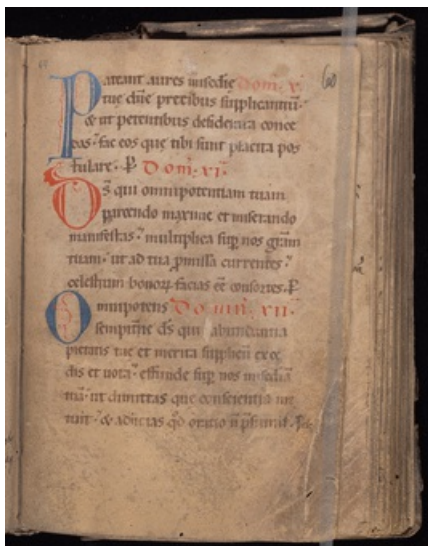 Pateant aures miſedię dom̄. x.
60
tuę dn̄e precibus ſupplicantiū.
& ut petentibus deſiderata conce
das. fac eos que tibi ſunt placita poſ
tulare. P̄ Dom̄. xi.
Ds̄ qui omnipotentiam tuam
parcendo maxime et miſerando
manifeſtas. multiplica ſup̄ nos gr̄am
tuam. ut ad tua ꝓmiſſa currentes.
celeſtium bonoꝝ facias eē conſortes. P̄
Omnipotens Dom̄. xii.
ſempitn̄e ds̄ qui abundantia
pietatis tuę et merita ſupplicū exce
dis et uota. effunde ſup̄ nos miſediā
tuā. ut dimittas que conſcientia me
tuit. & adicias qd̄ oratio n̄ p̄ſumit.